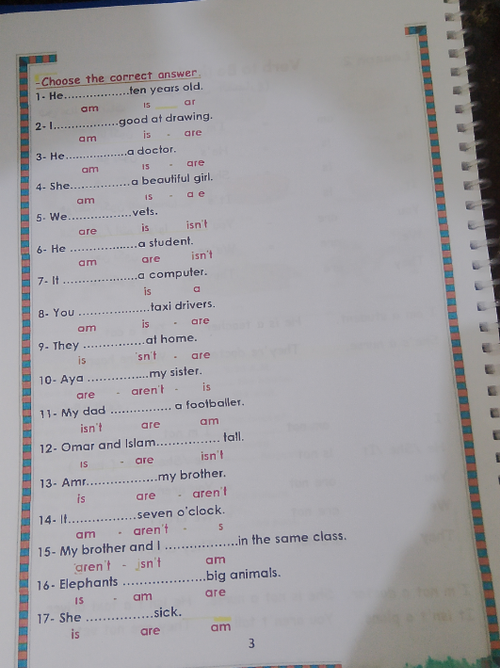 -Choose the correct answer.
1- He..................ten years old.
am is ar
2- I..................good at drawing.
am is - are
3- He.................a doctor.
am is - are
4- She.................a beautiful girl.
am is - a e
5- We..................vets.
are is isn't
6- He ...................a student.
am are isn't
7- It .....................a computer.
is a
8- You ....................taxi drivers.
am is - are
9- They .................at home.
is 'sn't - are
10- Aya .................my sister.
are - aren't - is
11- My dad ................. a footballer.
isn't are am
12- Omar and Islam................. tall.
is - are isn't
13- Amr....................my brother.
is are - aren't
14- It...................seven o'clock.
am - aren't - s
15- My brother and I ....................in the same class.
aren't - isn't am
16- Elephants .......................big animals.
is - am are
17- She ...................sick.
is are am
3